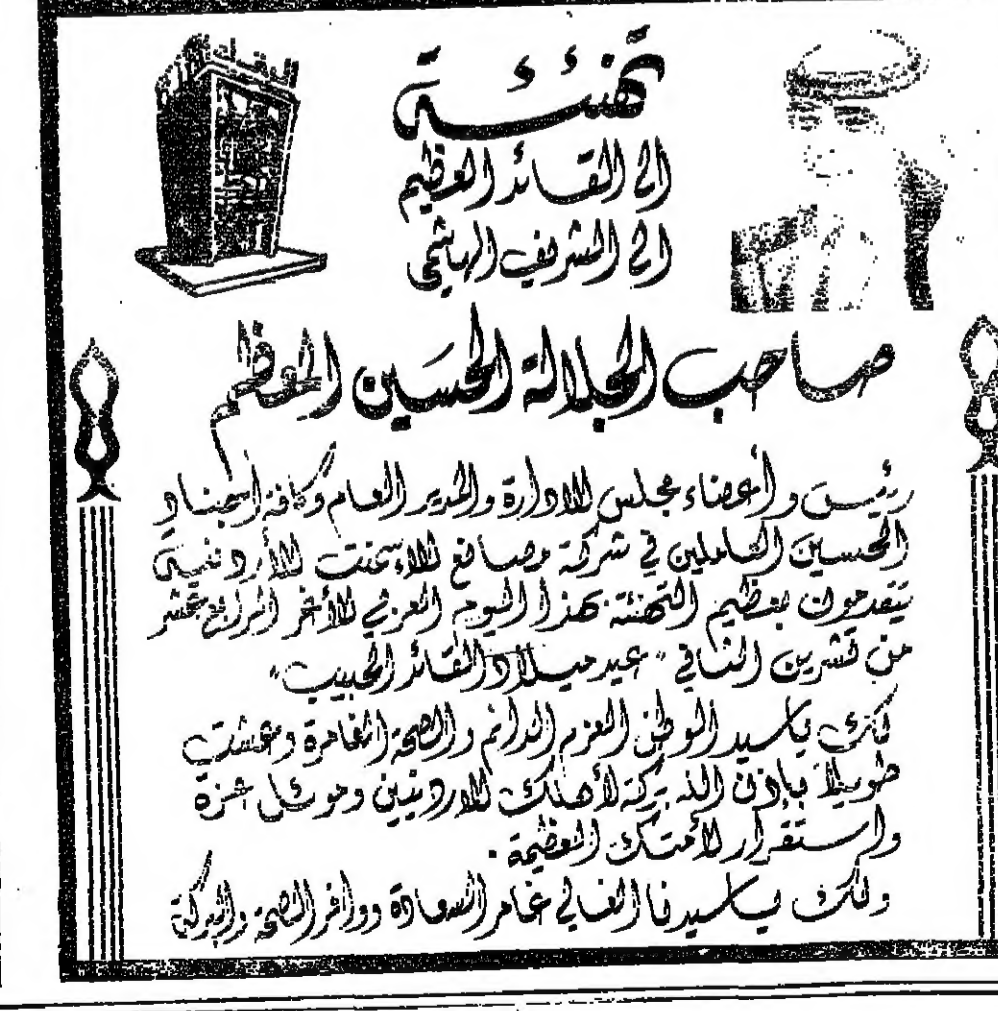 تهنئة
الى القائد العظيم
الى الشريف الهاشمي
صاحب الجلالة الحسين المعظم
رئيس وأعضاء مجلس الادارة والمدير العام وكافة أجناد
الحسين العاملين في شركة مصانع الاسمنت الأردنية
يتقدمون بعظيم التهنئة بهذا اليوم العربي الأغر الرابع عشر
من تشرين الثاني "عيد ميلاد القائد الحبيب"
لك يا سيد الوطن العزم الدائم والصحة الغامرة وعشت
طويلاً بإذن الله بركة لأهلك الاردنيين وموئل عزة
واستقرار لأمتك العظيمة .
ولك يا سيدنا الغالي غامر السعادة ووافر الصحة والبركة